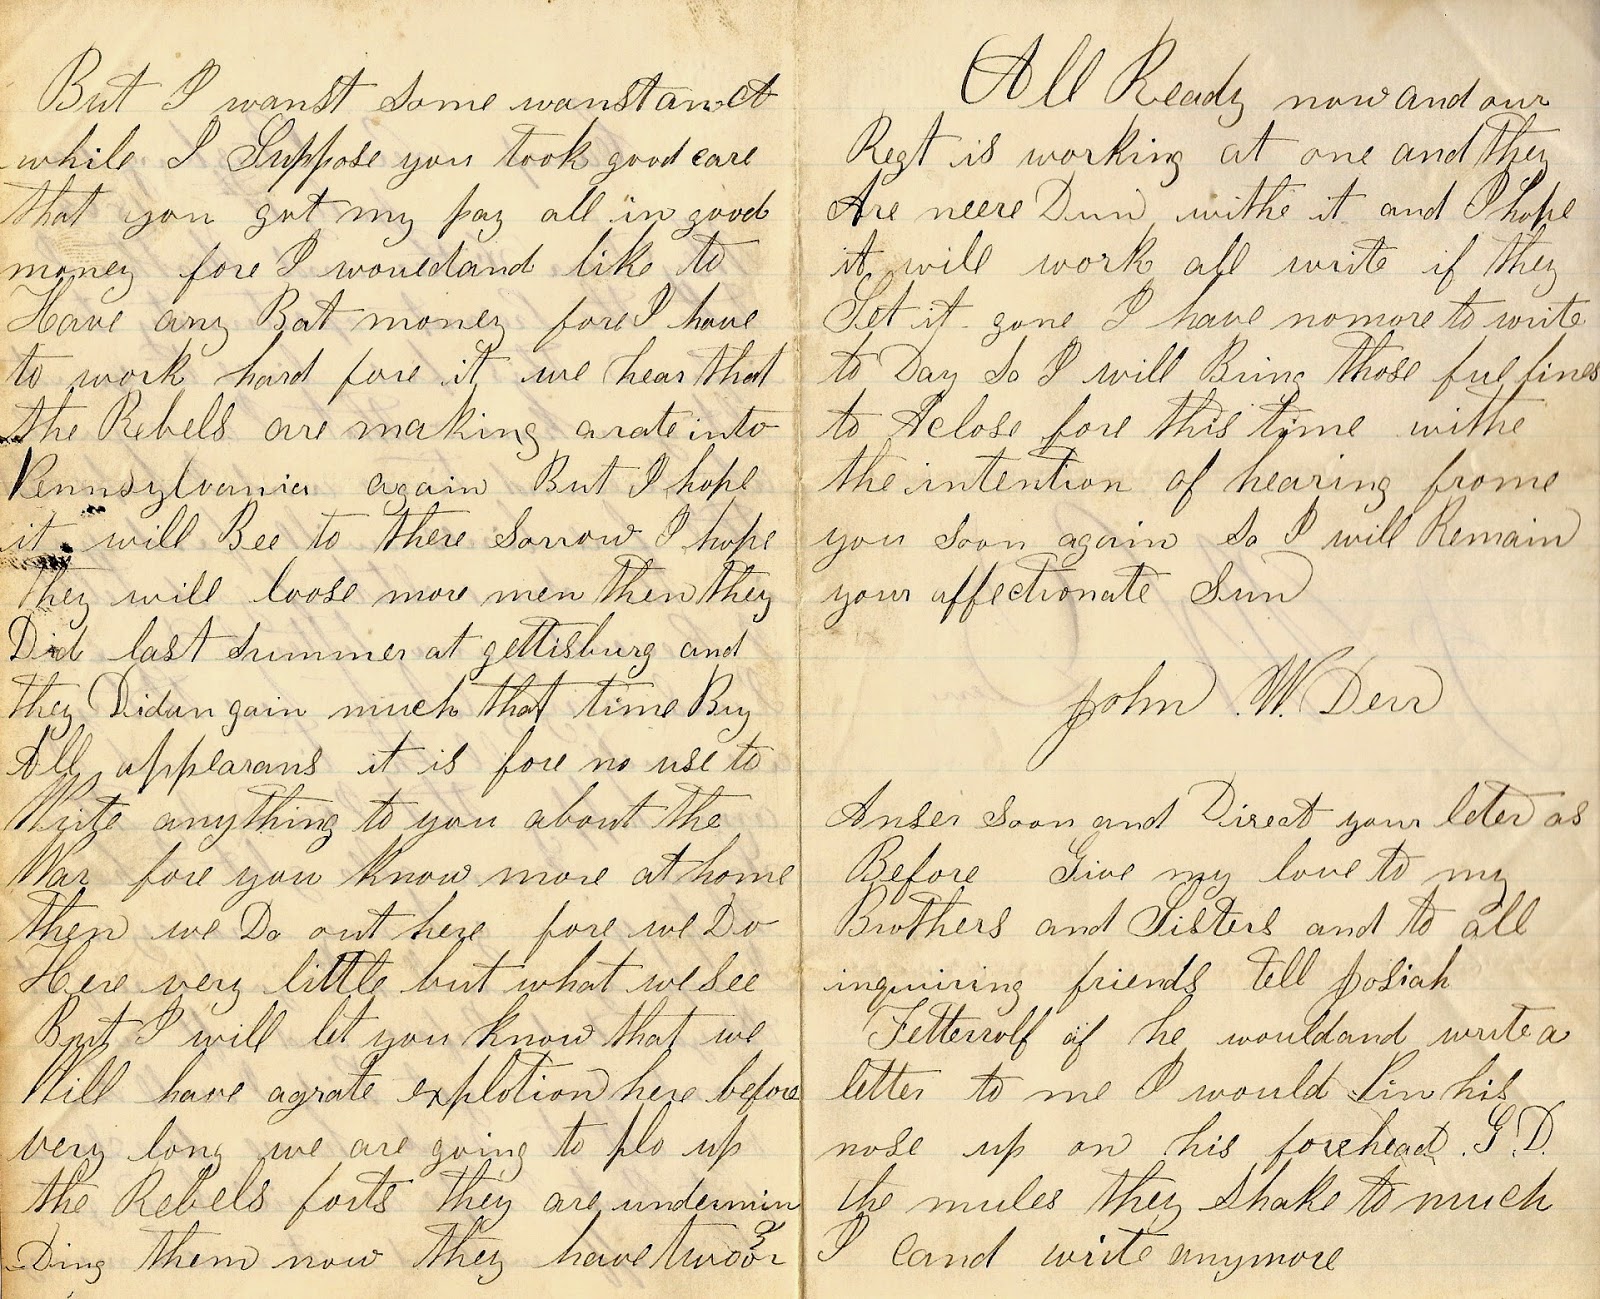 But I wanst some wanst an ct
while I Suppose you took good care
that you got my pay all in good
money fore I wouldand like to
Have any Bat money fore I have
to work hard fore it we hear that
the Rebels are making arate into
Pennsylvania again But I hope
it will Bee to there sorrow I hope
They will loose more men then they
Did last summer at gettisburg and
they Didan gain much that time By
All appearans it is fore no use to
Write anything to you about the
War fore you know more at home
then we Do out here fore we Do
Here very little but what we see
But I will let you know that we
Will have agrate explotion here before
very long we are going to plo up
the Rebels forts they are undermin
Ding them now they have two or 3
All Ready now and our
Regt is working at one and they
Are neere Dun withe it and I hope
it will work all write if they
Set it gone I have nomore to write
to Day so I will Bring those fue lines
to A close fore this time withe
the intention of hearing frome
you soon again so I will Remain
your affectionate Sun
John W. Derr
Anser soon and Direct your leter as
Before Give my love to my
Brothers and Sisters and to all
inquiring friends tell Josiah
Fetterrolf if he wouldand write a
letter to me I would Pin his
nose up on his forehead. G.D.
the mules they shake to much
I cand write anymore